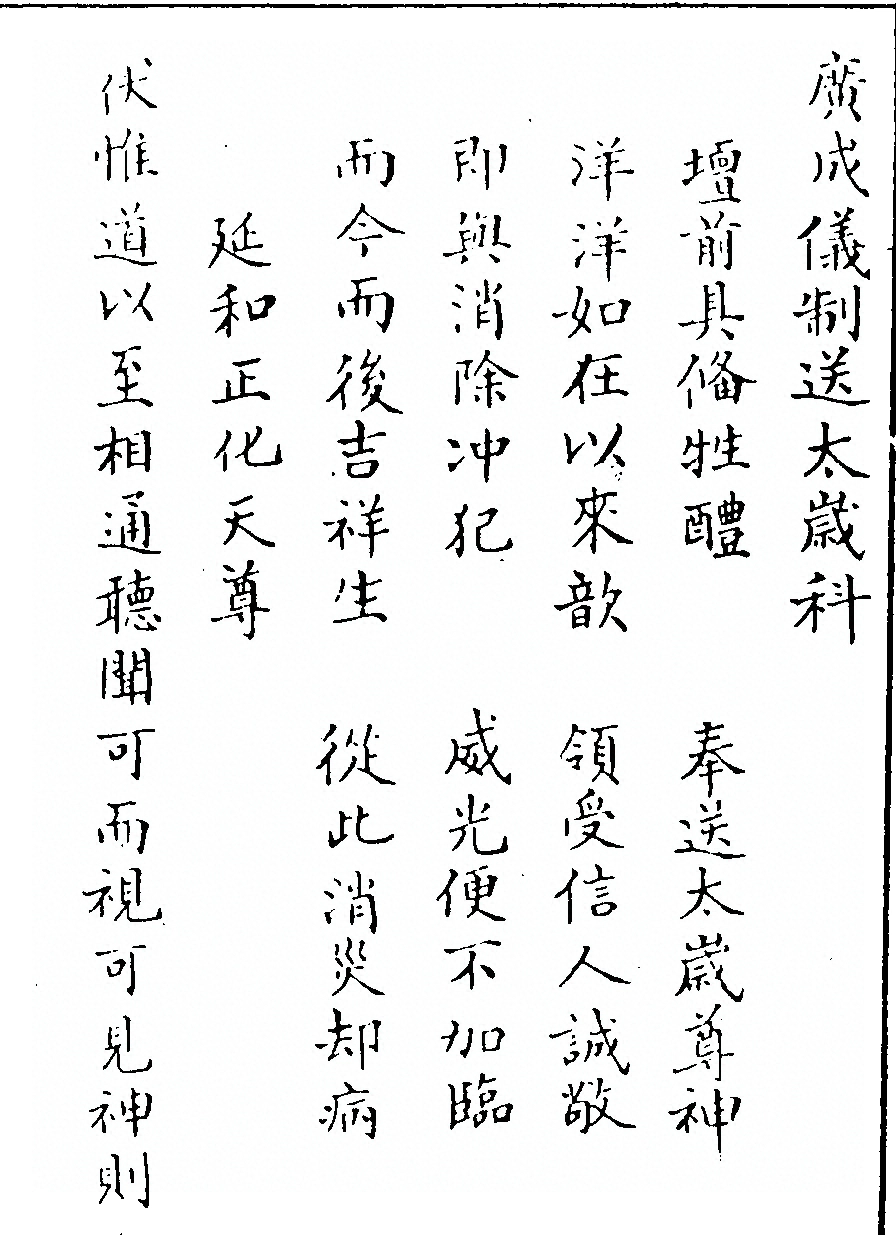 廣成儀制送太歲科
壇前具俻牲醴 奉送太歲尊神
洋洋如在以來歆 領受信人誠敬
即與消除冲犯 威光便不加臨
而今而後吉祥生 從此消災却病
延和正化天尊
伏惟道以至相通聽聞可而視可見神則